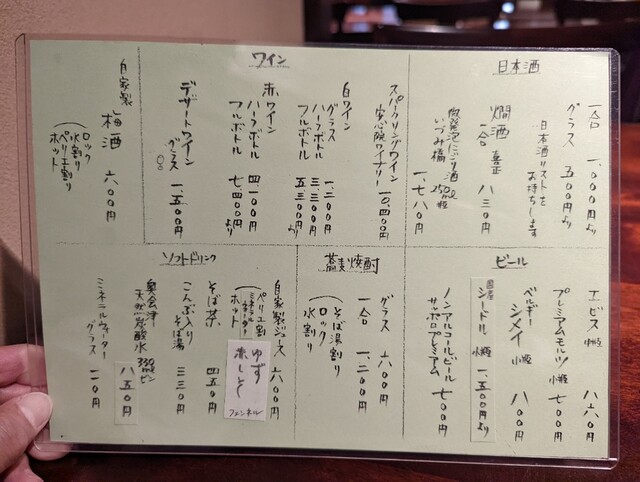 日本酒
一合 一、〇〇〇円より
グラス 五〇〇円より
日本酒リストを
お持ちします
燗酒 喜正
一合 八三〇円
微発泡にごり酒
いづみ橋 250ml瓶
一、七八〇円
ワイン
スパークリングワイン
安心院ワイナリー 一〇、四〇〇円
白ワイン
グラス 一、二〇〇円
ハーフボトル 三、三〇〇円
フルボトル 五、三〇〇円より
赤ワイン
ハーフボトル 四、一〇〇円
フルボトル 七、四〇〇円より
デザートワイン
グラス 一、五〇〇円
自家製
梅酒 六〇〇円
(ロック
水割り
ペリエ割り
ホット)
ビール
エビス 小瓶 八六〇円
プレミアムモルツ 小瓶 七〇〇円
ベルギー
シメイ 小瓶 八〇〇円
国産
シードル 小瓶 一、五〇〇円より
ノンアルコールビール
サッポロプレミアム 七〇〇円
蕎麦焼酎
グラス 六〇〇円
一合 一、二〇〇円
(そば湯割り
ロック
水割り)
ソフトドリンク
自家製ジュース 六〇〇円
(ペリエ割
ミネラルウォーター
ホット)
ゆず
赤しそ
フェンネル
そば茶 四五〇円
こんぶ入り
そば湯 三三〇円
奥会津
天然炭酸水 330mlビン
八五〇円
ミネラルウォーター
グラス 一一〇円